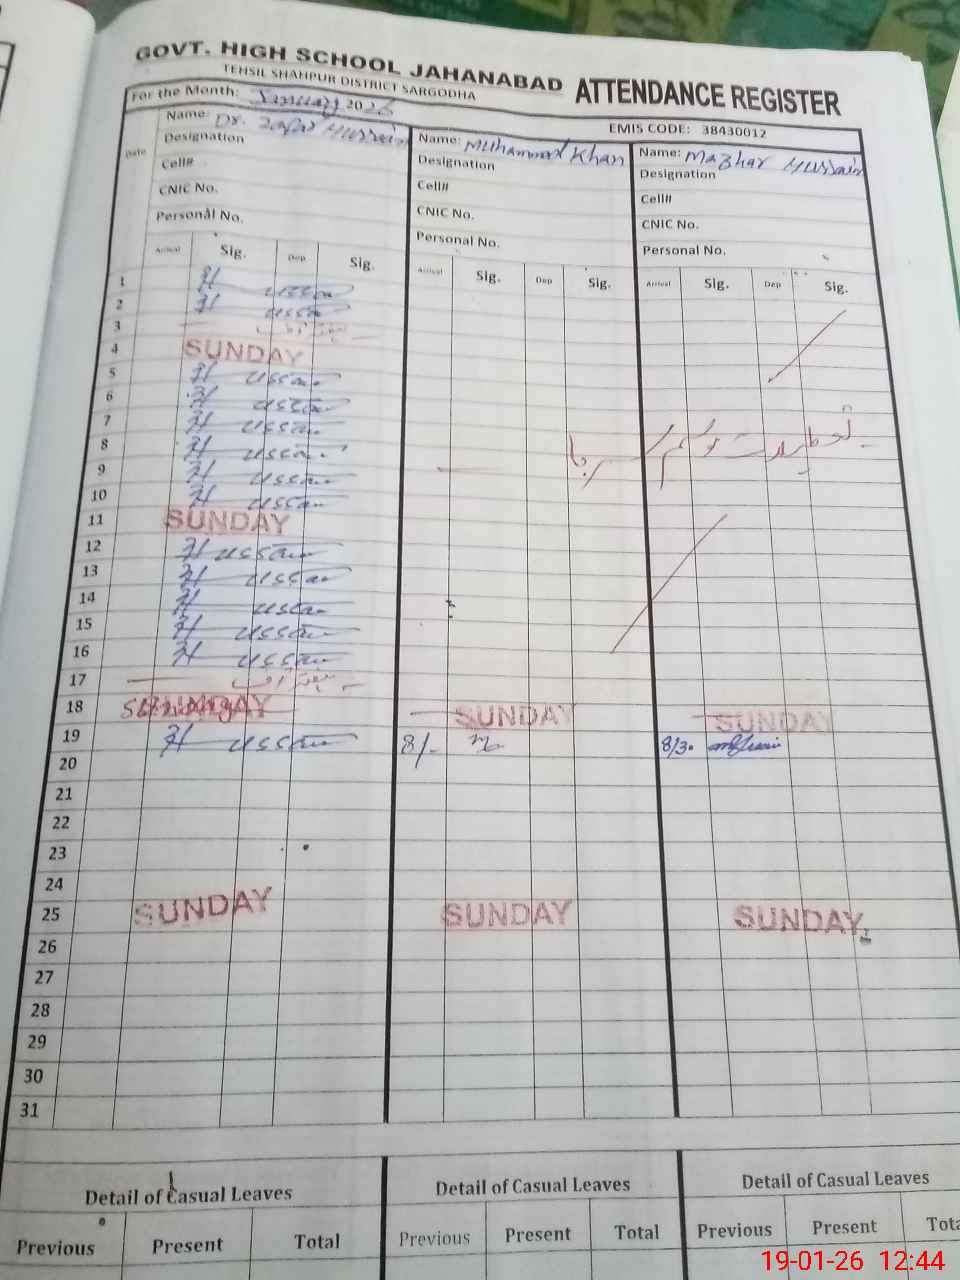 GOVT. HIGH SCHOOL JAHANABAD ATTENDANCE REGISTER
TEHSIL SHAHPUR DISTRICT SARGODHA
For the Month: January 2026
EMIS CODE: 38430012
Date
Name: Dr. Zafar Hussain
Designation
Cell#
CNIC No.
Personal No.
Name: Muhammad Khan
Designation
Cell#
CNIC No.
Personal No.
Name: Mazhar Hussain
Designation
Cell#
CNIC No.
Personal No.
Arrival Sig. Dep Sig. Arrival Sig. Dep Sig. Arrival Sig. Dep Sig.
1 Hussain
2 Hussain
3
4 SUNDAY
5 Hussain
6 Hussain
7 Hussain
8 Hussain
9 Hussain
10 Hussain
11 SUNDAY
12 Hussain
13 Hussain
14 Hussain
15 Hussain
16 Hussain
17
18 SUNDAY SUNDAY SUNDAY
19 Hussain 8/- 8/30
20
21
22
23
24
25 SUNDAY SUNDAY SUNDAY
26
27
28
29
30
31
تعطیلات موسم سرما
Detail of Casual Leaves Detail of Casual Leaves Detail of Casual Leaves
Previous Present Total Previous Present Total Previous Present
19-01-26 12:44